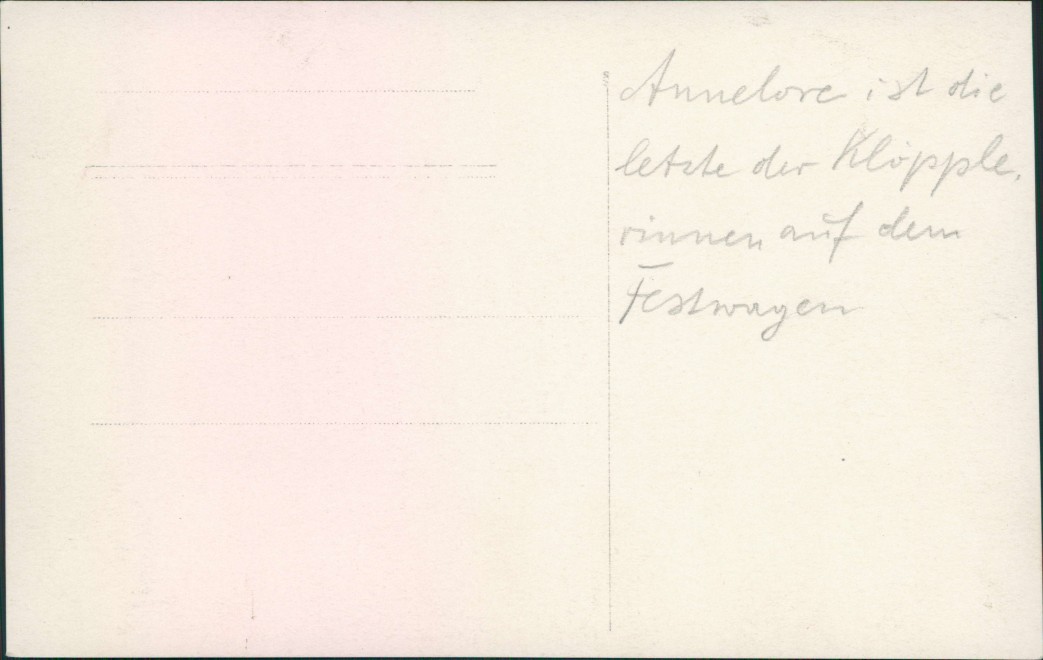 Annelore ist die
letzte der Klöpple-
rinnen auf dem
Festwagen